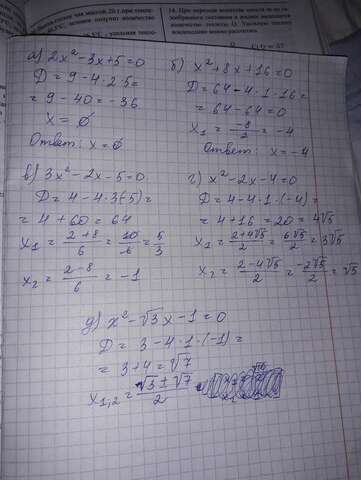 а) 2x² - 3x + 5 = 0
D = 9 - 4·2·5 =
= 9 - 40 = -36
x = ∅
Ответ: x = ∅
б) x² + 8x + 16 = 0
D = 64 - 4·1·16 =
= 64 - 64 = 0
x₁ = -8/2 = -4
Ответ: x = -4
в) 3x² - 2x - 5 = 0
D = 4 - 4·3·(-5) =
= 4 + 60 = 64
x₁ = (2+8)/6 = 10/6 = 5/3
x₂ = (2-8)/6 = -1
г) x² - 2x - 4 = 0
D = 4 - 4·1·(-4) =
= 4 + 16 = 20 = 4√5
x₁ = (2+4√5)/2 = 6√5/2 = 3√5
x₂ = (2-4√5)/2 = -2√5/2 = √5
д) x² - √3x - 1 = 0
D = 3 - 4·1·(-1) =
= 3 + 4 = √7
x₁,₂ = (√3 ± √7)/2